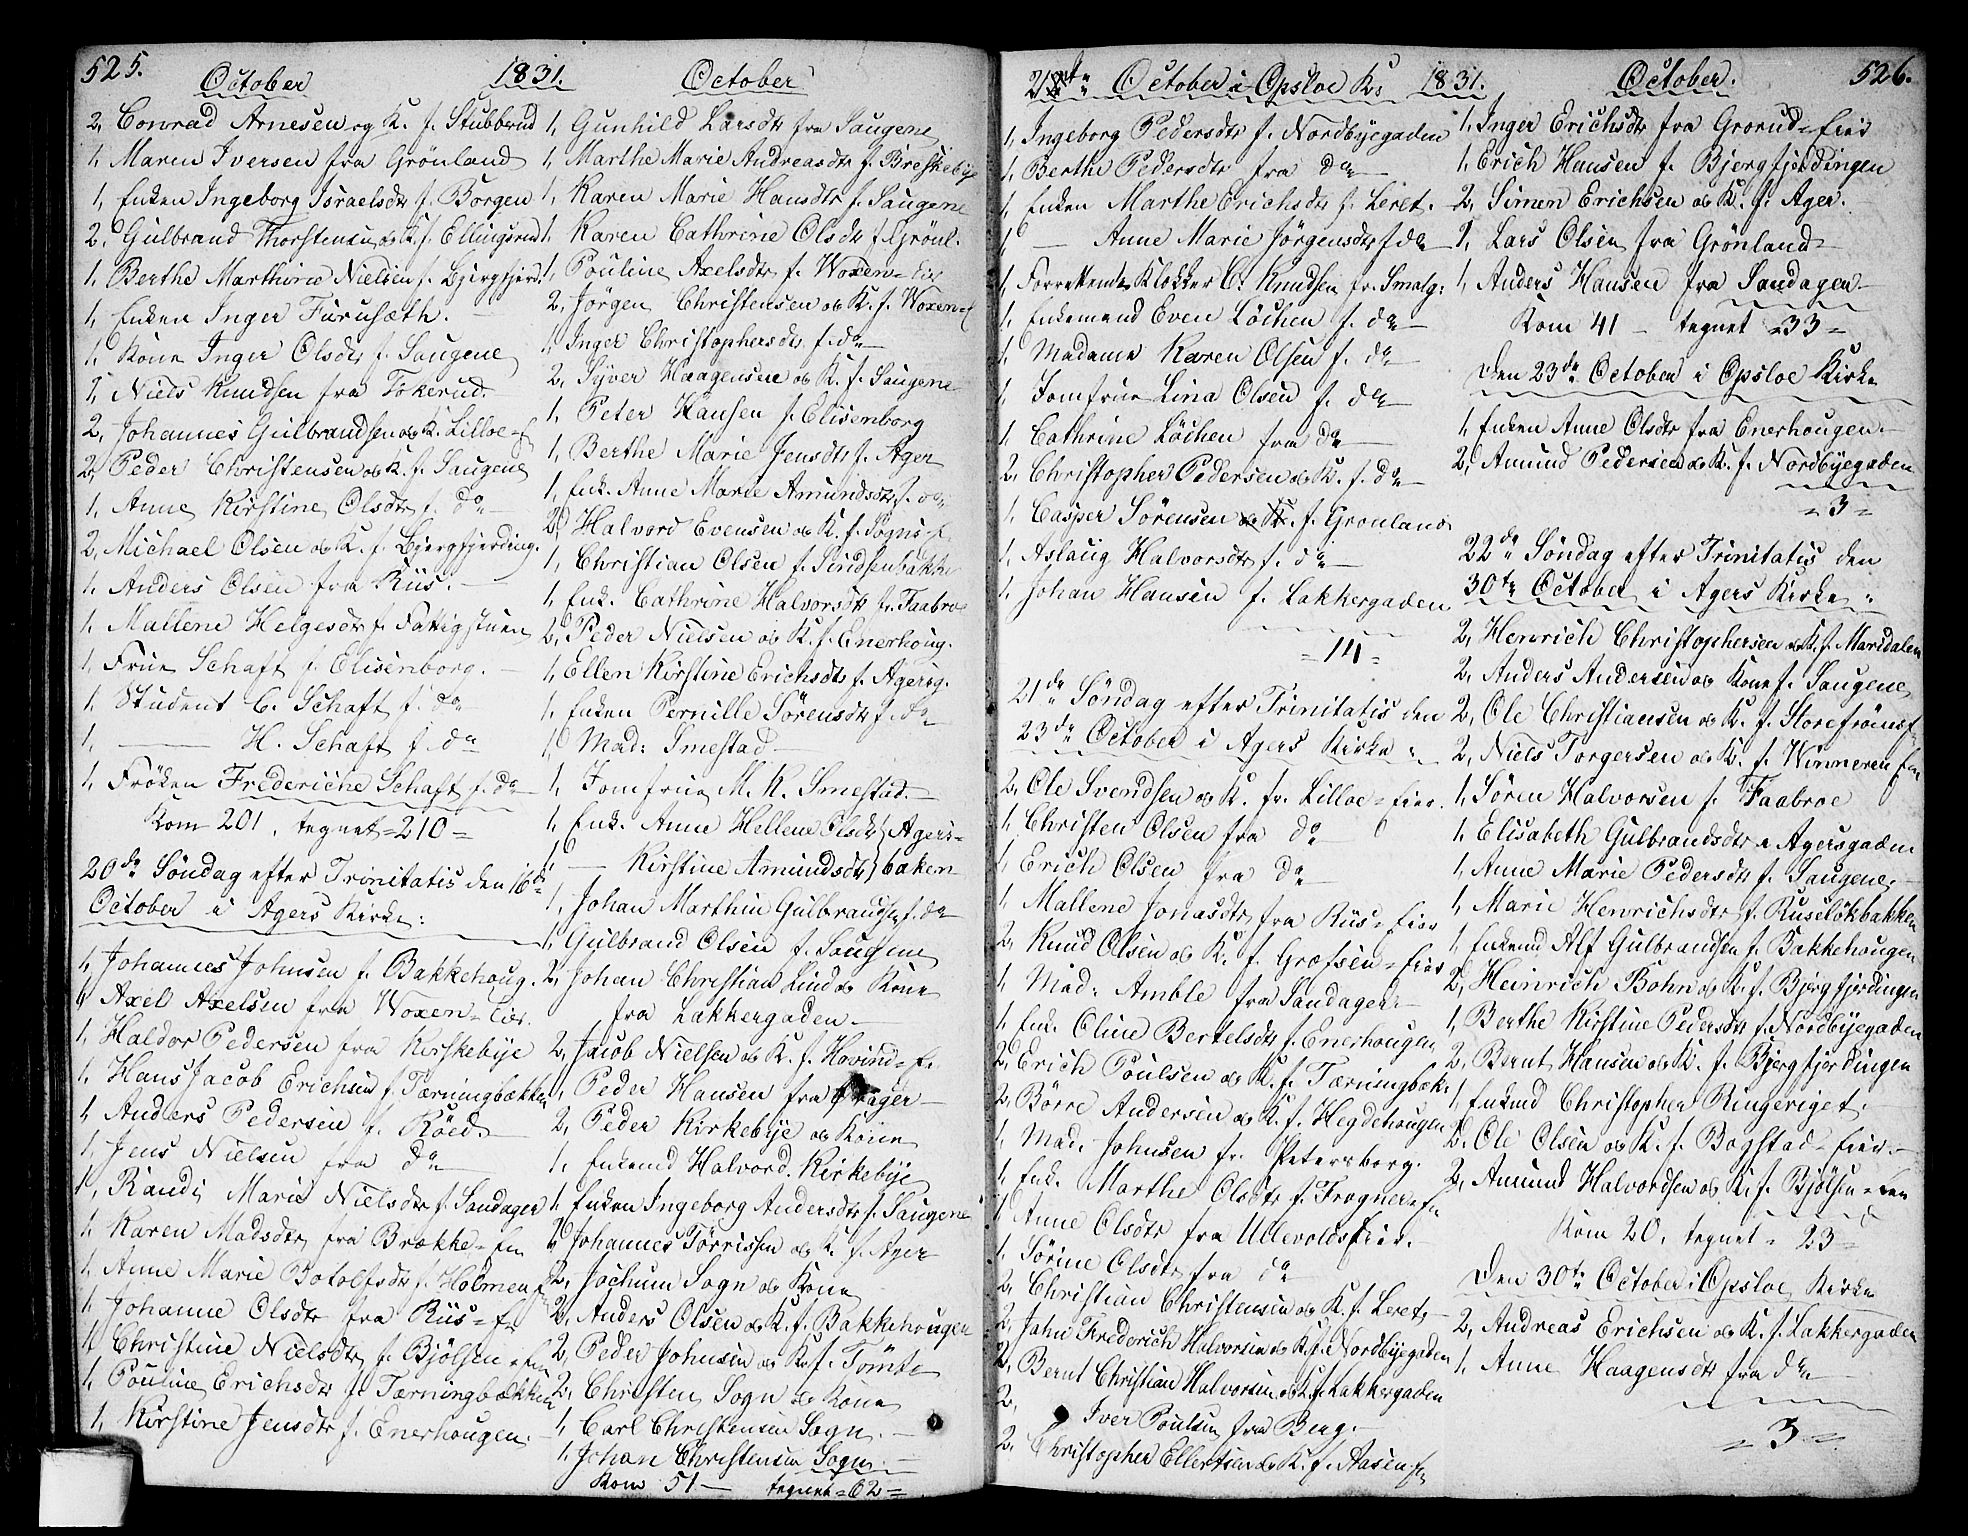 525.
October 1831. October
2, Conrad Arnesen og K. f. Stubberud
1, Maren Iversen fra Grönland
1, Enken Ingeborg Israelsdtr f. Borgen
2, Gulbrand Thorstensen og K. f. Ellingsrud
1, Berthe Marthine Nielsen f. Bjergfjerd.
1, Enken Inger Furusæth.
1, Kone Inger Olsdtr f. Saugene
1, Niels Knudsen fra Tokerud.
2, Johannes Gulbrandsen og K. Lilloe-E
2, Peder Christensen og K. f. Saugene
1, Anne Kirstine Olsdtr f. do
2, Michael Olsen og K. f. Bjergfjerding.
1, Anders Olsen fra Riis.
1, Mallene Helgesdtr f. Fattigstuen
1, Frue Schaft f. Elisenborg.
1, Student C. Schaft f. do
1, — H. Schaft f. do
1, Fröken Frederiche Schaft f. do
Kom 201, tegnet = 210 =
20de Söndag efter Trinitatis den 16de
October i Agers Kirke:
1, Johannes Johnsen f. Bakkehoug.
1, Axel Axelsen fra Woxen-Eier.
1, Haldor Pedersen fra Kirkebye
1, Hans Jacob Erichsen f. Tærningbækken
1, Anders Pedersen f. Röed
1, Jens Nielsen fra do
1, Randi Marie Nielsdtr f. Sandager
1, Karen Madsdtr fra Brække-Em
1, Anne Marie Botolfsdtr f. Holmen
1, Johanne Olsdtr fra Riis-E
1, Christine Nielsdtr f. Bjölsen
1, Pouline Erichsdtr f. Tærningbækken
1, Kirstine Jensdtr f. Enerhougen.
1, Gunhild Larsdtr fra Saugene
1, Marthe Marie Andreasdtr f. Breskebye
1, Karen Marie Hansdtr f. Saugene
1, Karen Cathrine Olsdtr f. Grönl.
1, Pouline Axelsdtr f. Woxen-Eie
2, Jörgen Christensen og K. f. Woxen-E
1, Inger Christophersdtr f. do
2, Syver Haagensen og K. f. Saugene
1, Peter Hansen f. Elisenborg
1, Berthe Marie Jensdtr f. Ager
1, Enk. Anne Marie Amundsdtr f. do
2, Halvord Evensen og K. f. Sogns-E.
1, Christian Olsen f. Sindsenbakke
1, Enk. Cathrine Halvorsdtr fr. Faabroe
2, Peder Nielsen og K. f. Enerhoug.
1, Ellen Kirstine Erichsdtr f. Agersg.
1, Enken Pernille Sörensdtr f. do
1, Mad: Smestad
1, Jomfrue M. K. Smestad.
1, Enk. Anne Hellene Olsdtr } Agers-
1, — Kirstine Amundsdtr } baken
1, Johan Marthin Gulbrandsen f. do
1, Gulbrand Olsen f. Saugene
2, Johan Christian Lind og Kone
fra Lakkergaden.
2, Jacob Nielsen og K. f. Hovind-E.
1, Peder Hansen fra ager
2, Peder Kirkebye og Kone
1, Enkemd Halvord Kirkebye
1, Enken Ingeborg Andersdtr f. Saugene
2, Johannes Törrissen og K. f. Ager
2, Jochum Sogn og Kone
2, Anders Olsen og K. f. Bakkehougen
2, Peder Johnsen og K. f. Tömte
2, Christen Sogn og Kone
1, Carl Christensen Sogn.
1, Johan Christensen Sogn.
Kom 51 — tegnet = 62 =
October i Opsloe K: 1831. October. 526.
1, Ingeborg Pedersdtr f. Nordbyegaden
1, Berthe Pedersdtr fra do
1, Enken Marthe Erichsdtr f. Leret.
1, — Anne Marie Jörgensdtr f. do
1, Forrettende Klokker C. Knudsen fr. Smalg:
1, Enkemand Even Löchen f. do
1, Madame Karen Olsen f. do
1, Jomfrue Lina Olsen f. do
1, Cathrine Löchen fra do
2, Christopher Pedersen og K. f. do
1, Casper Sörensen og K. f. Gronland
1, Aslaug Halvorsdtr f. do
1, Johan Hansen f. Lakkergaden
= 14 =
21de Söndag efter Trinitatis den
23de October i Agers Kirke:
2, Ole Svendsen og K. fr. Lilloe-Eier.
1, Christen Olsen fra do
1, Erich Olsen fra do
1, Mallene Jonasdtr fra Riis-Eier
2, Knud Olsen og K. f. Grefsen-Eier
1, Mad: Amble fra Sandager
1, Enk. Oline Bertelsdtr f. Enerhougen
2, Erich Poulsen og K. f. Tærningbæk.
2, Börre Andersen og K. f. Hegdehougen
1, Mad. Johnsen fr. Petersborg.
1, Enk. Marthe Olsdtr f. Frogner-En
1, Anne Olsdtr fra Ullevolds Eier.
1, Sörine Olsdtr fra do
2, Christian Christensen og K. f. Leret
2, Jahn Frederich Halvorsen og K. f. Nordbyegaden
2, Bernt Christian Halvorsen og K. f. Lakkergaden
2, Iver Poulsen fra Berg.
2, Christopher Ellertsen og K. f. Aasen-En
1, Inger Erichsdtr fra Grorud-Eier
1, Erich Hansen f. Bjergfjerdingen
2, Simen Erichsen og K. f. Ager.
1, Lars Olsen fra Grönland
1, Anders Hansen fra Sandagen
Kom 41 — tegnet = 33 =
Den 23de October i Opsloe Kirke
1, Enken Anne Olsdtr fra Enerhougen.
2, Amund Pedersen og K. f. Nordbyegaden
= 3 =
22de Söndag efter Trinitatis den
30te October i Agers Kirke:
2, Henrich Christophersen og K. f. Maridalen
2, Anders Andersen og Kone f. Saugene
2, Ole Christiansen og K. f. Storefröens
2, Niels Torgersen og K. f. Winneren
1, Sören Halvorsen f. Faabroe
1, Elisabeth Gulbrandsdtr Agersgaden
1, Anne Marie Pedersdtr f. Saugene.
1, Marie Henrichsdtr f. Ruselökbakken
1, Enkemd Alf Gulbrandsen f. Bakkehougen
2, Heinrich Bohn og K. f. Bjergfjerdingen
1, Berthe Kirstine Pedersdtr f. Nordbyegaden
2, Bernt Hansen og K. f. Bjergfjerdingen
1, Enkemd Christopher Ringeriget.
2, Ole Olsen og K. f. Bogstad-Eier.
2, Amund Halvordsen og K. f. Bjölsen-Eier
Kom 20, tegnet = 23 =
Den 30te October i Opsloe Kirke
2, Andreas Erichsen og K. f. Lakkergaden
1, Anne Haagensdtr fra do
= 3 =